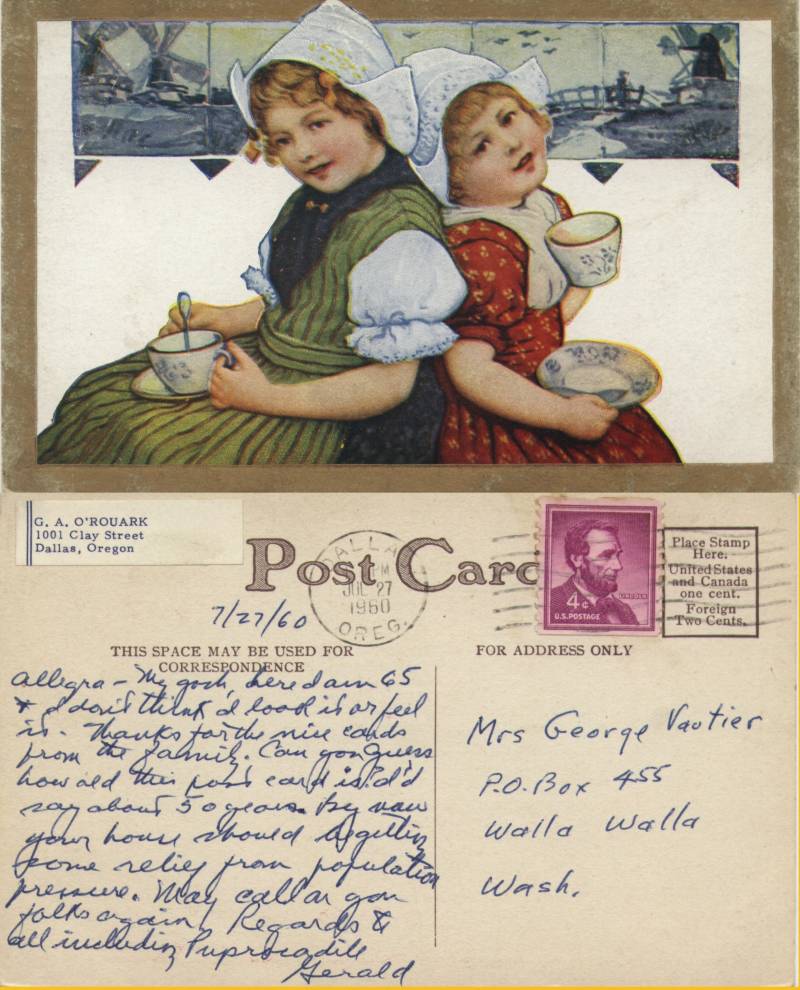 G. A. O'ROUARK
1001 Clay Street
Dallas, Oregon
Post Card
DALLA
PM
JUL 27
1960
OREG.
4¢
LINCOLN
U.S. POSTAGE
Place Stamp
Here.
United States
and Canada
one cent.
Foreign
Two Cents.
7/27/60
THIS SPACE MAY BE USED FOR
CORRESPONDENCE
FOR ADDRESS ONLY
Allegra – My gosh, here I am 65
& I don't think I look it or feel
it. Thanks for the nice cards
from the family. Can you guess
how old this post card is? I'd
say about 50 years. By now
your house should be getting
some relief from population
pressure. May call on you
folks again. Regards to
all including
Gerald
Mrs George Vautier
P.O. Box 455
Walla Walla
Wash.